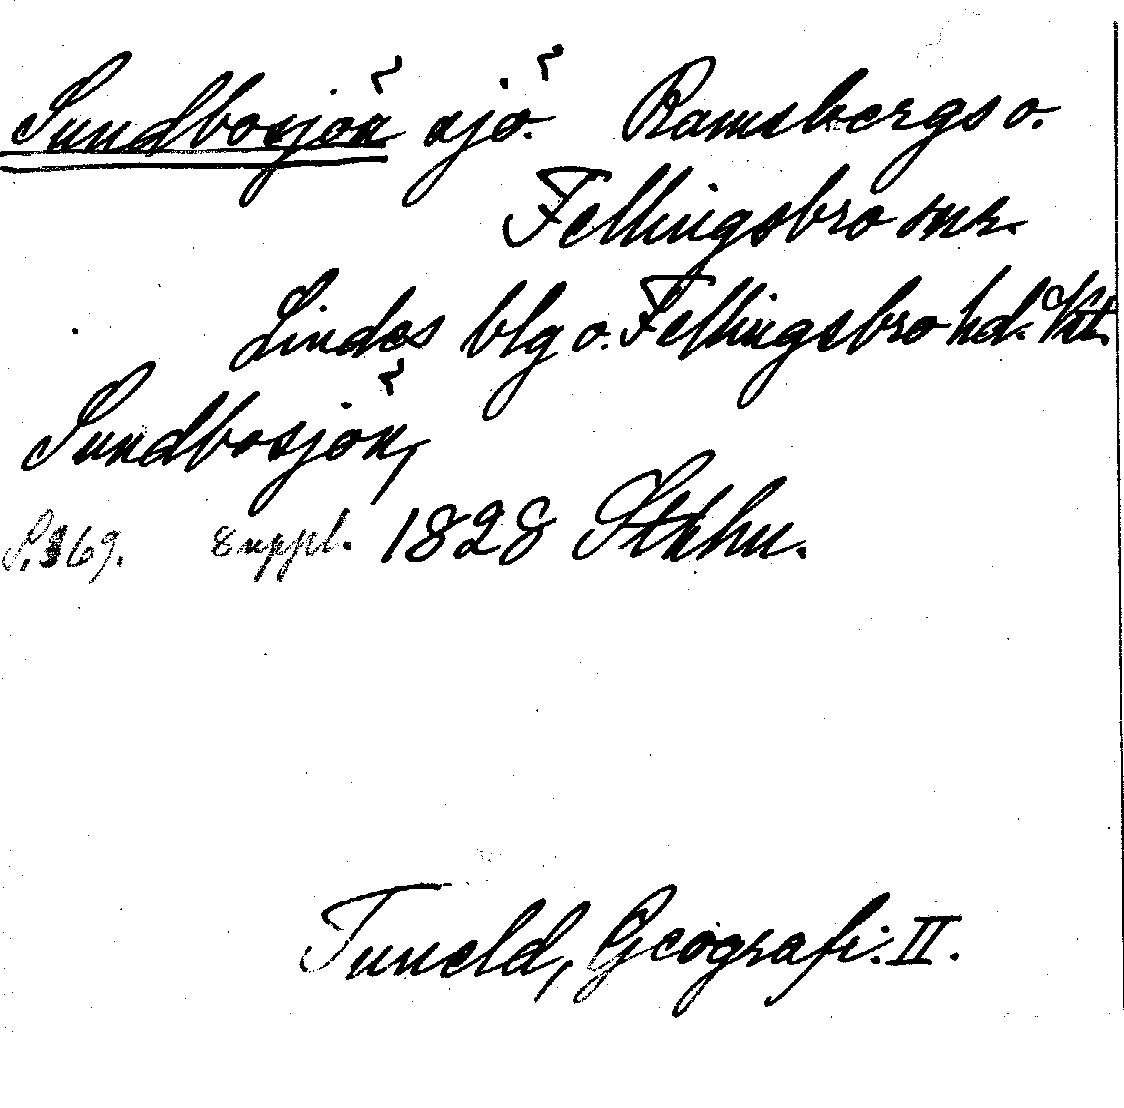 Sundbosjön sjö. Ramsbergs o.
Fellingsbro snr.
Lindes blg o. Fellingsbro hd. Vstl.
Sundbosjön,
S. 369. Suppl. 1828 Sthhn.
Tuneld, Geografi: II.